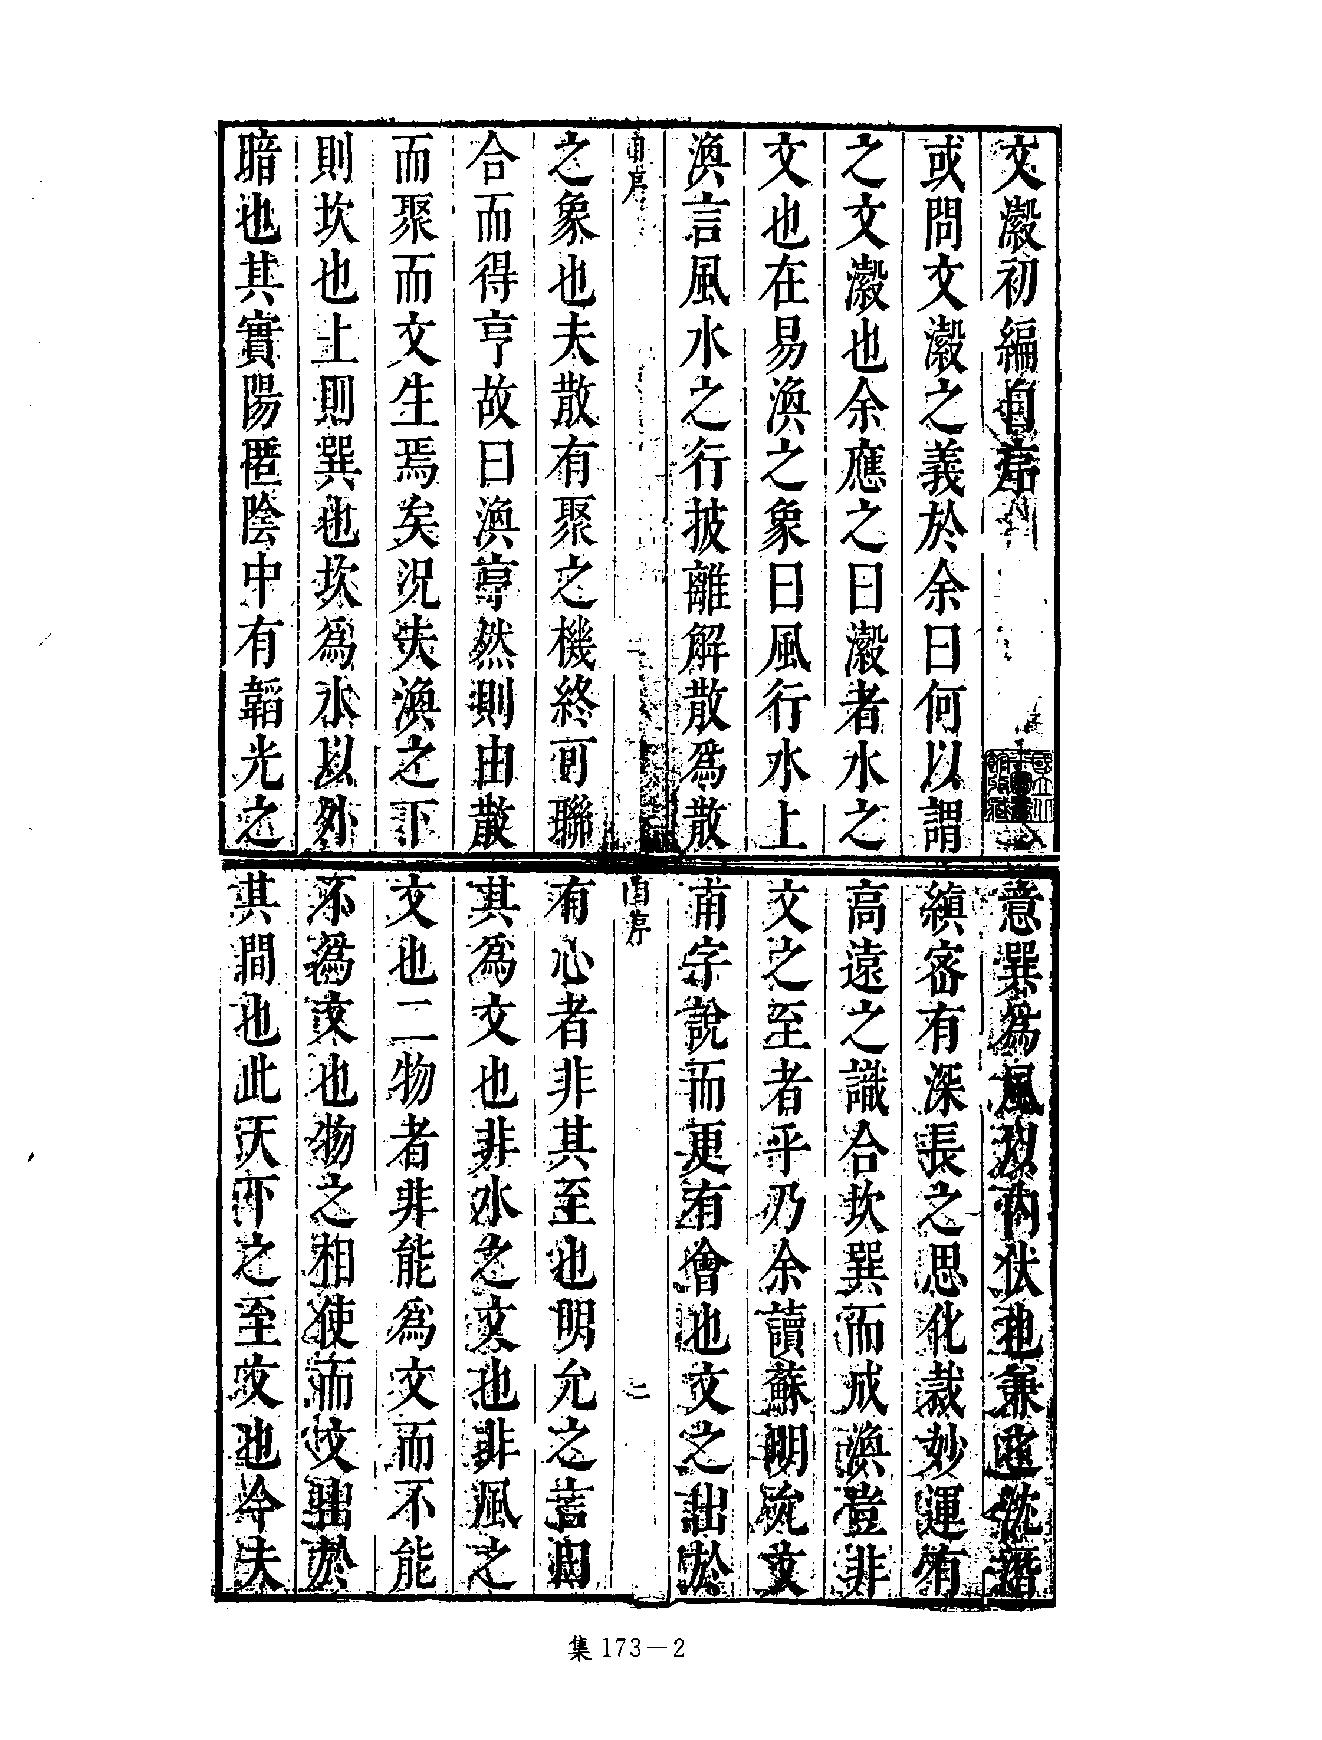 文瀫初編自序
或問文瀫之義於余曰何以謂
之文瀫也余應之曰瀫者水之
文也在易渙之象曰風行水上
渙言風水之行披離解散爲散
自序
一
之象也夫散有聚之機終可聯
合而得亨故曰渙亨然則由散
而聚而文生焉矣況夫渙之下
則坎也上則巽也坎爲水以外
暗也其實陽匿陰中有韜光之
意巽爲風以內伏也兼遜忱譖
縝密有深長之思化裁妙運有
高遠之識合坎巽而成渙豈非
文之至者乎乃余讀蘇明允文
甫字說而更有會也文之出於
自序
二
有心者非其至也明允之言曰
其爲文也非水之文也非風之
文也二物者非能爲文而不能
不爲文也物之相使而文出於
其間也此天下之至文也今夫
集173－2